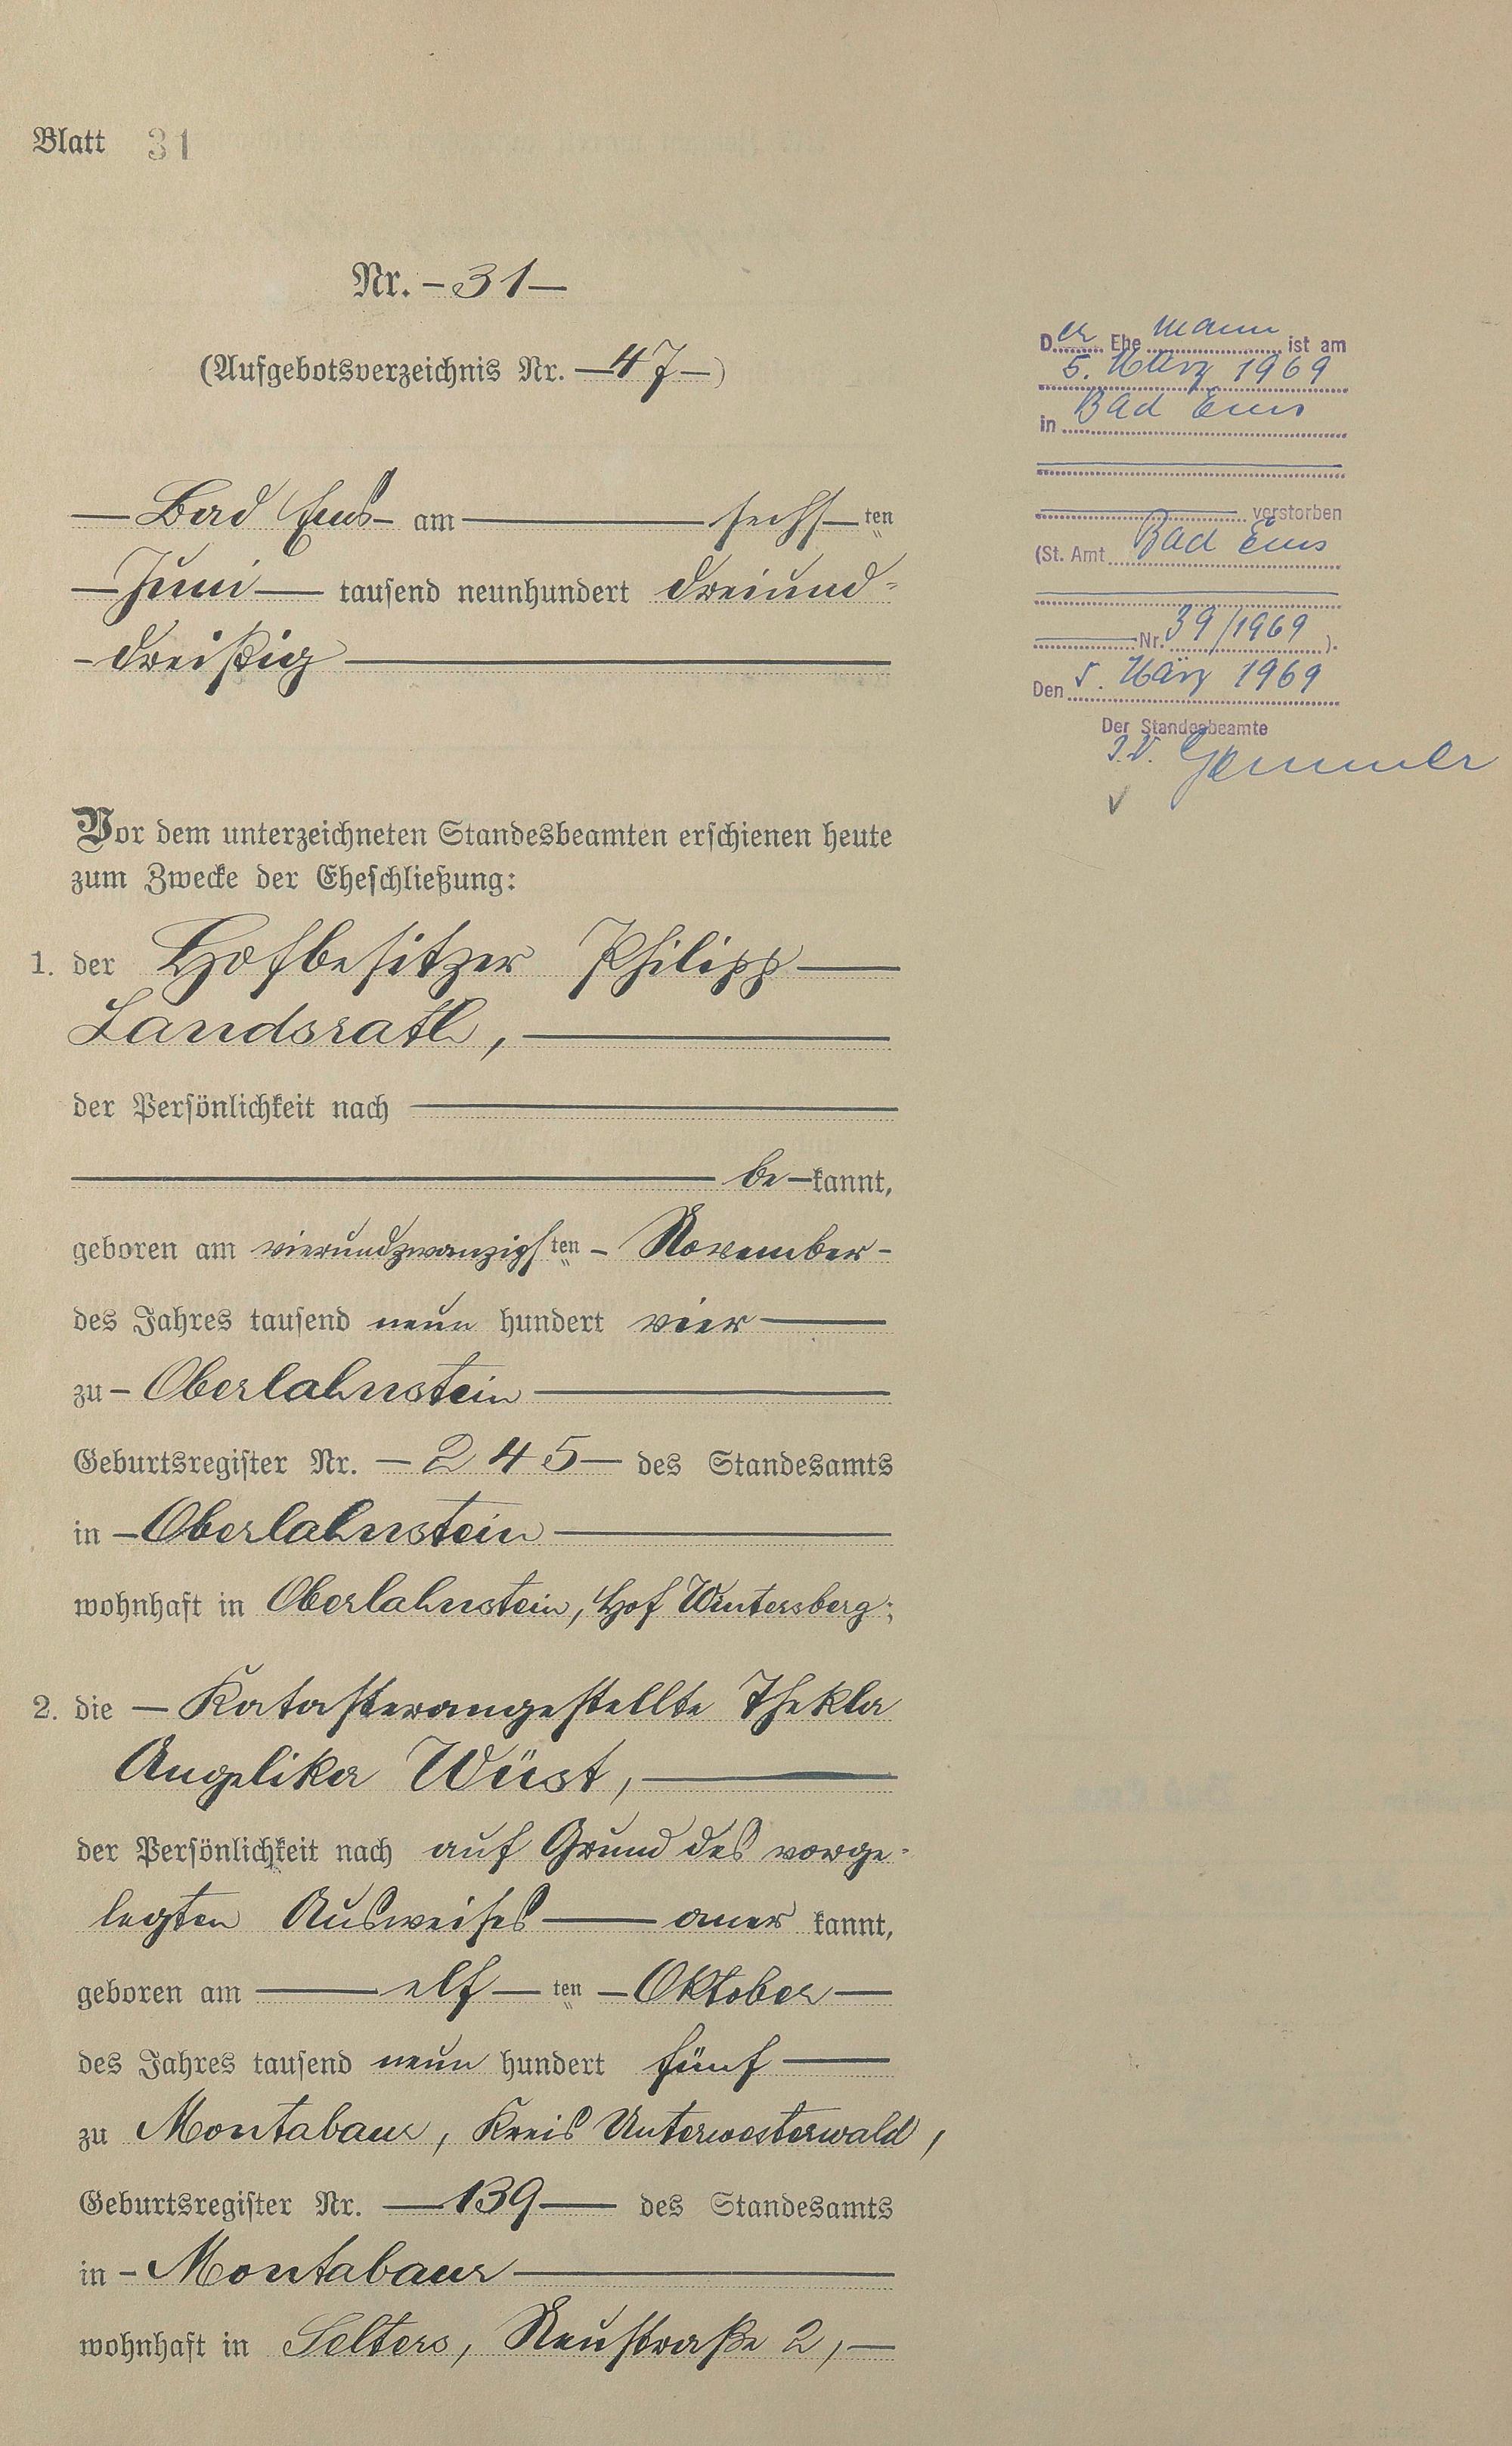 Blatt 31
Nr. – 31 –
(Aufgebotsverzeichnis Nr. – 47 –)
– Bad Ems – am – sechsten
– Juni – tausend neunhundert dreiund-
- dreißig –
Vor dem unterzeichneten Standesbeamten erschienen heute
zum Zwecke der Eheschließung:
1. der Hofbesitzer Philipp –
Landsrath, –
der Persönlichkeit nach –
– be – kannt,
geboren am vierundzwanzigsten – November –
des Jahres tausend neun hundert vier –
zu – Oberlahnstein –
Geburtsregister Nr. – 245 – des Standesamts
in – Oberlahnstein –
wohnhaft in Oberlahnstein, Hof Wintersberg;
2. die – Katasterangestellte Thekla
Angelika Wüst, –
der Persönlichkeit nach auf Grund des vorge-
legten Ausweises – aner kannt,
geboren am – elf – ten – Oktober –
des Jahres tausend neun hundert fünf –
zu Montabaur, Kreis Unterwesterwald,
Geburtsregister Nr. – 139 – des Standesamts
in – Montabaur –
wohnhaft in Selters, Neustraße 2, –
Der Ehemann ist am
5. März 1969
in Bad Ems
verstorben
(St. Amt Bad Ems
Nr. 39/1969 ).
Den 5. März 1969
Der Standesbeamte
I.V. Gemmer